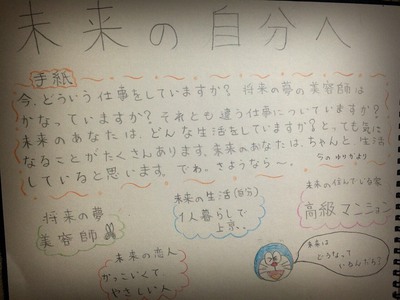 未来の自分へ
手紙
今、どういう仕事をしていますか? 将来の夢の美容師は
かなっていますか?それとも違う仕事についていますか?
未来のあなたは、どんな生活をしていますか?とっても気に
なることがたくさんあります。未来のあなたは、ちゃんと、生活
していると思います。 でわ。さようなら〜。
5の ゆりかより
将来の夢
美容師
未来の生活(自分)
1人暮らしで
上京。。
未来の住んでいる家
高級マンション
未来の恋人
かっこいくて
やさしい人
未来は
どうなって
いるんだろ?